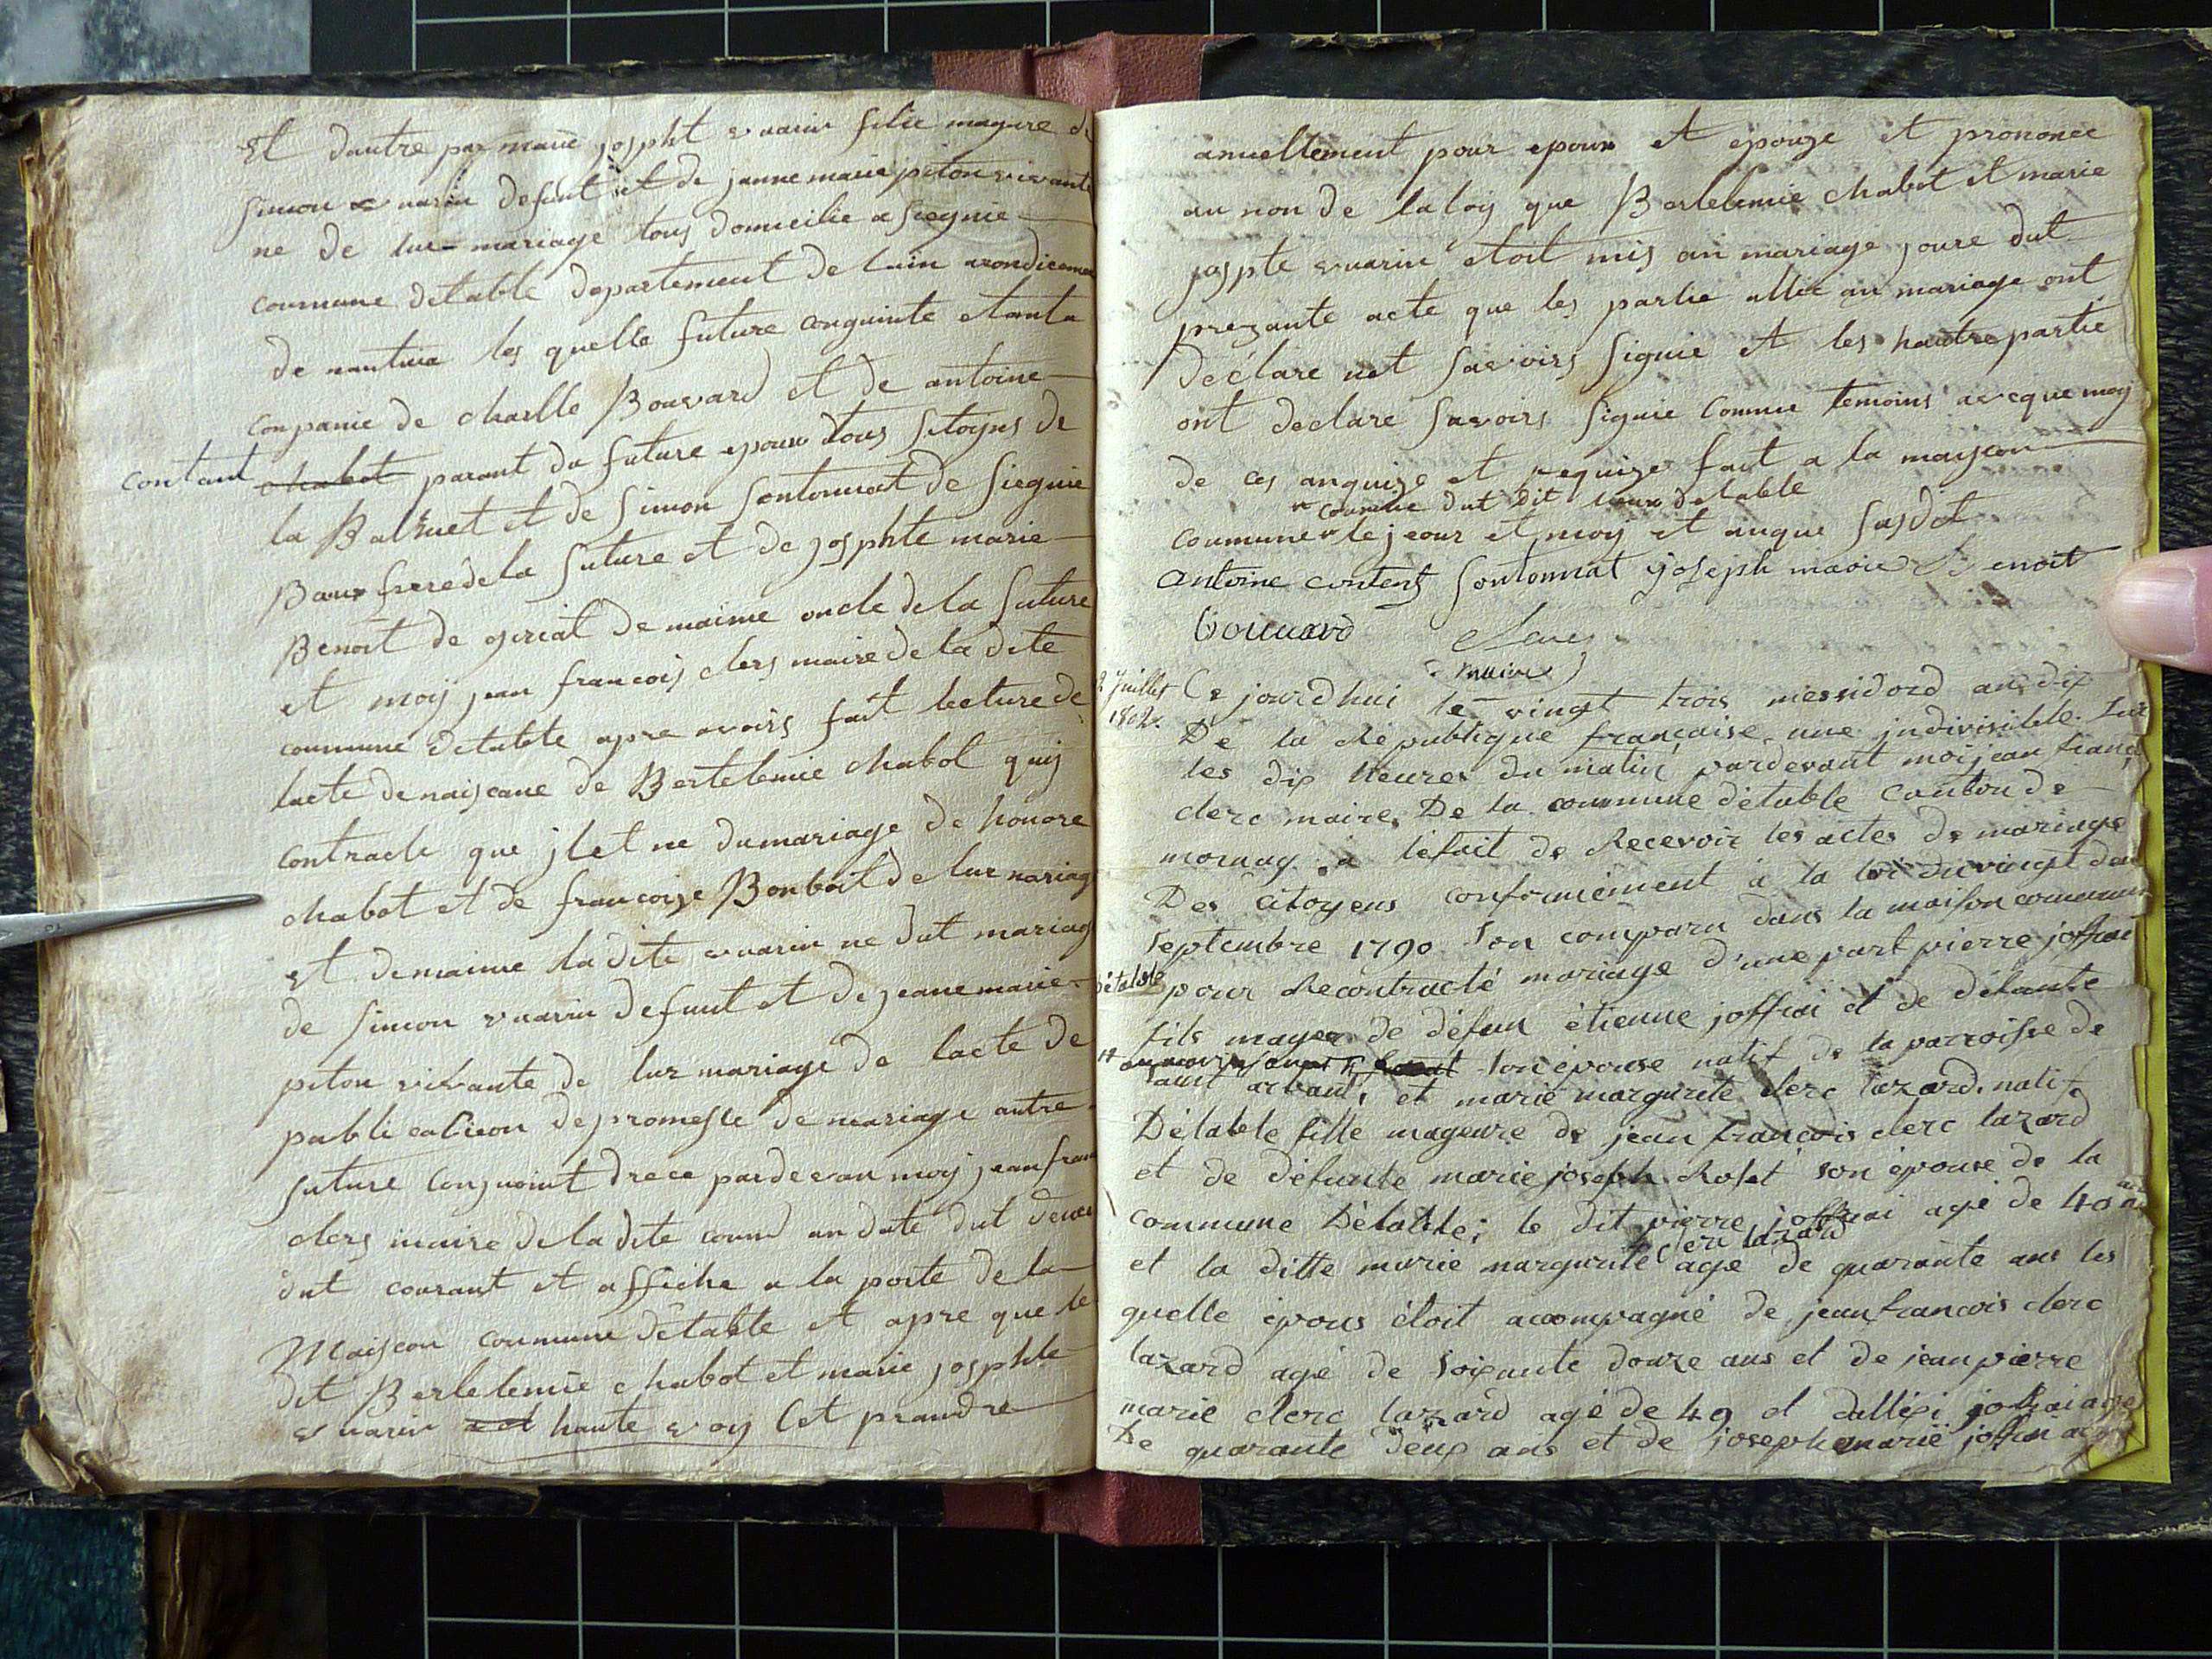 Et dautre par marie jospht vuarin filie mageure de
Simon vuarin defunt et de janne marie piton vivante
ne de lur mariage tous domicilie a siegnie
coumune detable departement de lain arondiceme
de nantua les quelle future conguinte etant a
conpanie de charlle Bouvard et de antoine
contant chabot parant du future epoux tous sitoyns de
la Balmet et de Simon Sontonnat de siegnie
Baux frere de la future et de josphte marie
Benoit de giriat de maime oncle de la future
et moy jean francois clers maire de la dite
coumune detable apre avoirs fait lecture de
lacte de naiscane de Bertelemie chabot quij
contracte que jlet ne du mariage de honore
chabot et de francoise Bonboit de lur mariag
et de maime la dite vuarin ne dut mariag
de Simon vuarin defunt et de jeane marie
piton vivante de lur mariage de lacte de
publi cacieon de promesse de mariage autre
future conjuoint drece parde van moy jean fran
clers maire de la dite coum an date dut deux
dut courant et affiche a la porte de la
Maiscon coumune detable et apre que le
dit Bertelemie chabot et marie josphte
vuarin haute voy let prandre
anuellement pour epoux et epouze et prononce
au non de la loy que Bertelemie chabot et marie
jospte vuarin etoit mis an mariage joure dut
prezante acte que les partie allie au mariage ont
déclare net savoirs signie et les hautre partie
ont declare savoirs signie comme temoins avcque moy
de ces anquize et requize fait a la mayson
coumune dut dit lieux detable
coumune le jeour et moy et anque susdit
antoine contens sontonnat joseph marie Benoit
bouuard Clerc
maire
2 juillet
1802.
Ce jourdhui le vingt trois messidord an dix
De la République française une jndivisible. Sur
les dix heures du matin pardevant moi jean franç
clerc maire De la commune détable canton de
mornay a léfait de Recevoir les actes de mariage
Des citoyens conformément à la loi du vingt deu
septembre 1790 son comparu dans la maison commune
Détable pour Recontracté mariage d'une part pierre joffrai
fils mager de défun étienne joffrai et de défunte
son épouse natif de la parroisse de
et marie margurete clerc lazard. natif
Détable fille mageure de jean francois clerc lazard
et de défunte marie joseph Rolet son épouse de la
commune Détable; le dit pierre joffrai agé de 40 ans
clerc lazard
et la ditte marie margurite agé de quarante ans les
quelle épous étoit accompagné de jean francois clerc
lazard agé de soixante douze ans et de jean pierre
marie clerc lazard agé de 49 et dallexi joffrai age
De quarante deux ans et de joseph marie joffrai agé